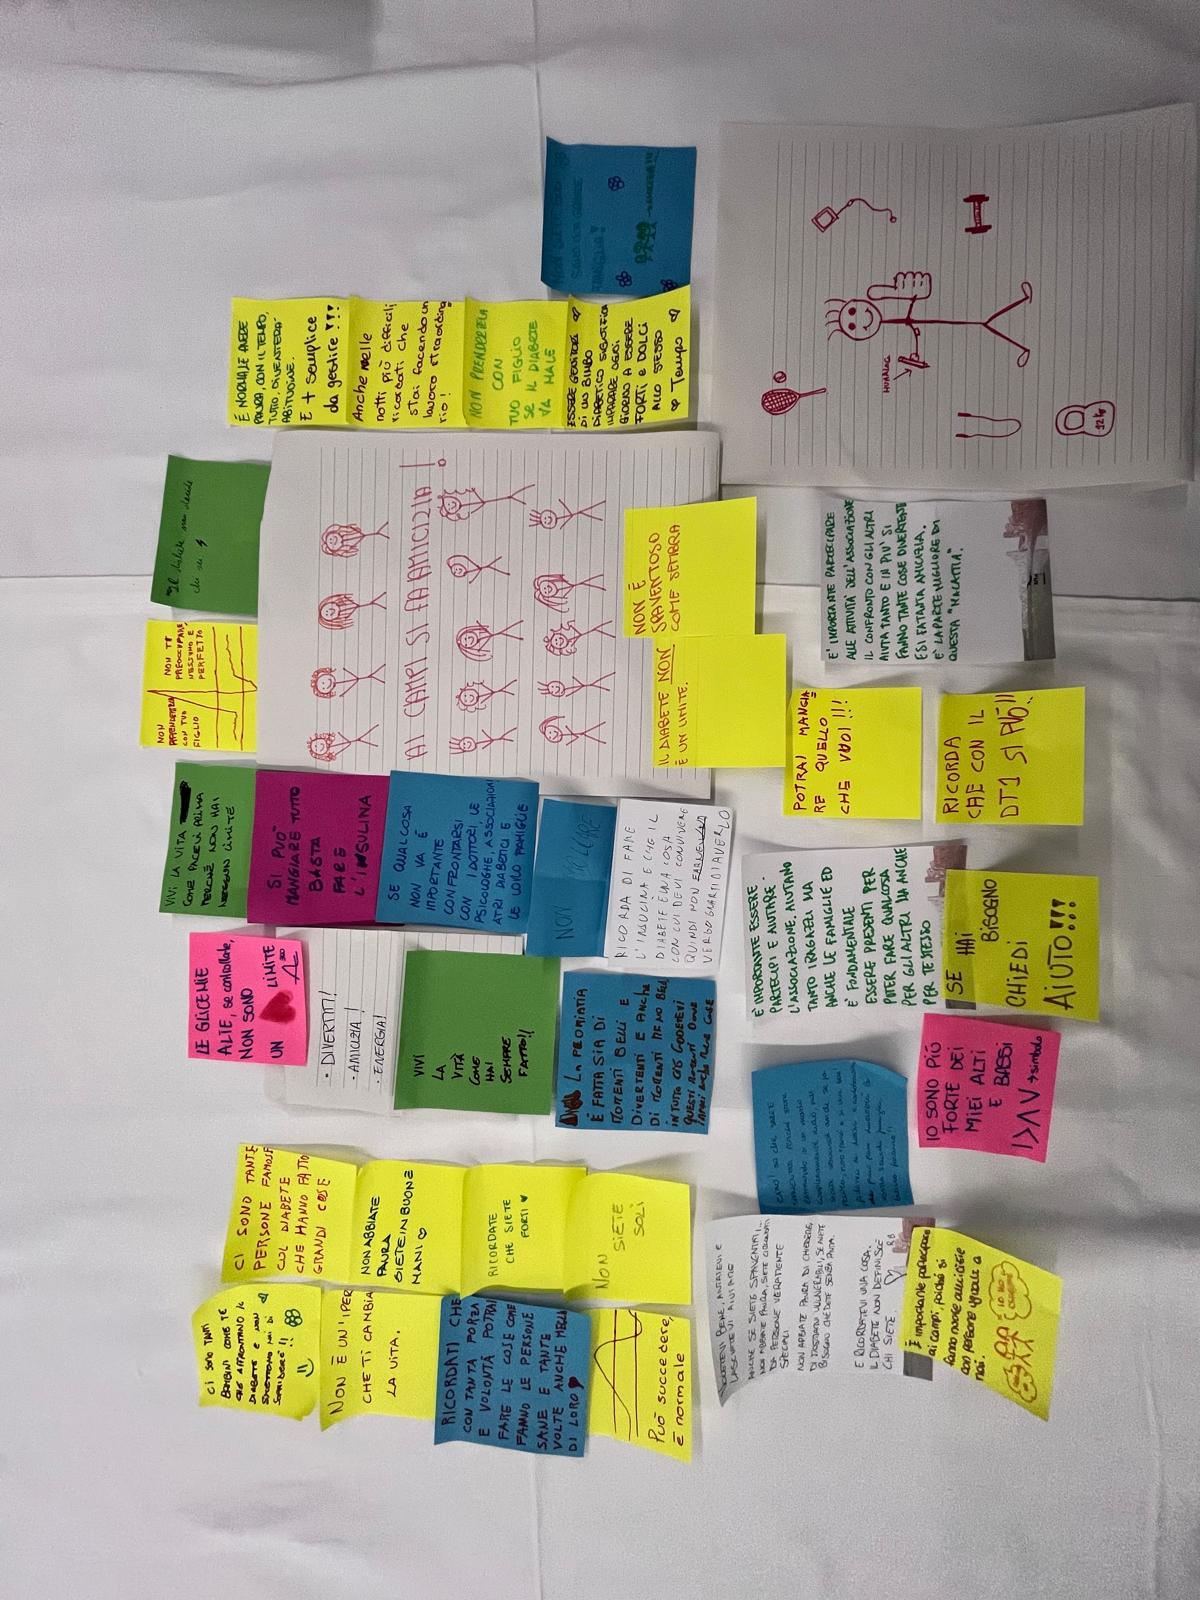 CI SONO TANTI
BAMBINI COME TE
CHE AFFRONTANO IL
DIABETE E NON
SMETTONO MAI DI
SORRIDERE!!
NON È UN'IPER
CHE TI CAMBIA
LA VITA.
RICORDATI CHE
CON TANTA FORZA
E VOLONTÀ POTRAI
FARE LE COSE COME
FANNO LE PERSONE
SANE E TANTE
VOLTE ANCHE MEGLIO
DI LORO
Può succedere,
è normale
CI SONO TANTE
PERSONE FAMOSE
COL DIABETE
CHE HANNO FATTO
GRANDI COSE
NON ABBIATE
PAURA
SIETE IN BUONE
MANI
RICORDATE
CHE SIETE
FORTI
NON
SIETE
SOLI
LE GLICEMIE
ALTE, se controllate,
NON SONO
UN LIMITE
• DIVERTITI!
• AMICIZIA!
• ENERGIA!
VIVI
LA
VITÀ
COME
HAI
SEMPRE
FATTO!!
LA PRONTATIA
È FATTA SIA DI
MOMENTI BELLI E
DIVERTENTI E ANCHE
DI MOMENTI MENO BELLI
IN TUTTO CIÒ GODETEVI
QUESTI MOMENTI DOVE
VIVI LA VITA
COME FACEVI PRIMA
PERCHÈ NON HAI
NESSUN LIMITE
SI PUÒ
MANGIARE TUTTO
BASTA
FARE
L'INSULINA
SE QUALCOSA
NON VA È
IMPORTANTE
CONFRONTARSI
CON I DOTTORI, LE
PSICOLOGHE, ASSOCIAZIONI
ATRI DIABETICI E
LE LORO FAMIGLIE
NON MOLLARE
RICORDA DI FARE
L'INSULINA E CHE IL
DIABETE È UNA COSA
CON CUI DEVI CONVIVERE
QUINDI NON
VERGOGNARTI DI AVERLO
NON
PRENDERTELA
CON TUO
FIGLIO
NON TI
PREOCCUPARE,
NESSUNO È
PERFETTO
"Il diabete non decide
chi sei
AI CAMPI SI FA AMICIZIA!
IL DIABETE NON
È UN LIMITE.
NON È
SPAVENTOSO
COME SEMBRA
È NORMALE AVERE
PAURA, CON IL TEMPO,
TUTTO, DIVENTERÀ,
ABITUDINE.
E + semplice
da gestire!!!
Anche nelle
notti più difficili
ricordati che
stai facendo un
lavoro straordina-
rio!
NON PRENDERTELA
CON
TUO FIGLIO
SE IL DIABETE
VA MALE
ESSERE GENITORI
DI UN BIMBO
DIABETICO SIGNIFICA
IMPARARE OGNI
GIORNO A ESSERE
FORTI E DOLCI
ALLO STESSO
Tempo
FAMIGLIA!
HUMALOG
12 kg
ANCHE SE SIETE SPAVENTATI...
NON ABBIATE PAURA, SIETE CIRCONDATI
DA PERSONE VERAMENTE
SPECIALI
NON ABBIATE PAURA DI CHIEDERE,
DI MOSTRARVI VULNERABILI, SE AVETE
BISOGNO CHIEDETE SENZA PAURA.
E RICORDATEVI UNA COSA:
IL DIABETE NON DEFINISCE
CHI SIETE.
È importante partecipare
ai campi, poichè si
fanno nuove amicizie
con persone uguali a
noi.
IO SONO PIÙ
FORTE DEI
MIEI ALTI
E BASSI
I > Λ V → simbolo
È IMPORTANTE ESSERE
PARTECIPI E AIUTARE
L'ASSOCIAZIONE. AIUTANO
TANTO I RAGAZZI MA
ANCHE LE FAMIGLIE ED
È FONDAMENTALE
ESSERE PRESENTI PER
POTER FARE QUALCOSA
PER GLI ALTRI MA ANCHE
PER TE STESSO
SE HAI
BISOGNO
CHIEDI
AIUTO!!!
POTRAI MANGIA-
RE QUELLO
CHE VUOI!!!
RICORDA
CHE CON IL
DT1 SI PUÒ!!
E' IMPORTANTE PARTECIPARE
ALLE ATTIVITÀ DELL'ASSOCIAZIONE
IL CONFRONTO CON GLI ALTRI
AIUTA TANTO E IN PIÙ SI
FANNO TANTE COSE DIVERTENTI
E SI FA TANTA AMICIZIA.
E' LA PARTE MIGLIORE DI
QUESTA "MALATTIA".